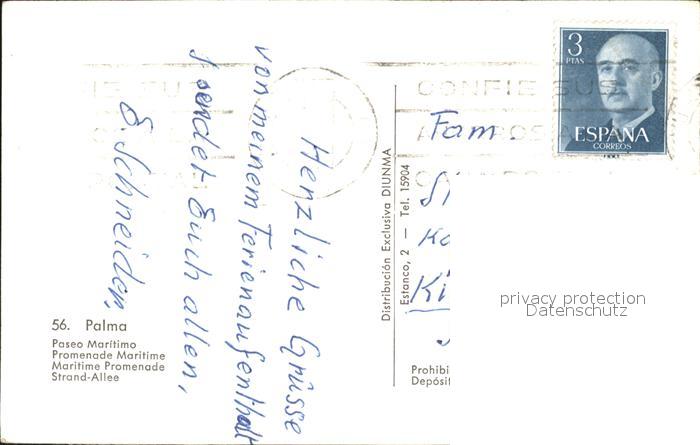 Herzliche Grüsse
von meinem Ferienaufenthalt
sendet Euch allen,
E. Schneider.
56. Palma
Paseo Marítimo
Promenade Maritime
Maritime Promenade
Strand-Allee
Distribución Exclusiva DIUNMA
Estanco, 2 — Tel. 15904
3
PTAS
ESPAÑA
CORREOS
CONFIE SUS
Fam.
Prohibi
Depósit
privacy protection
Datenschutz